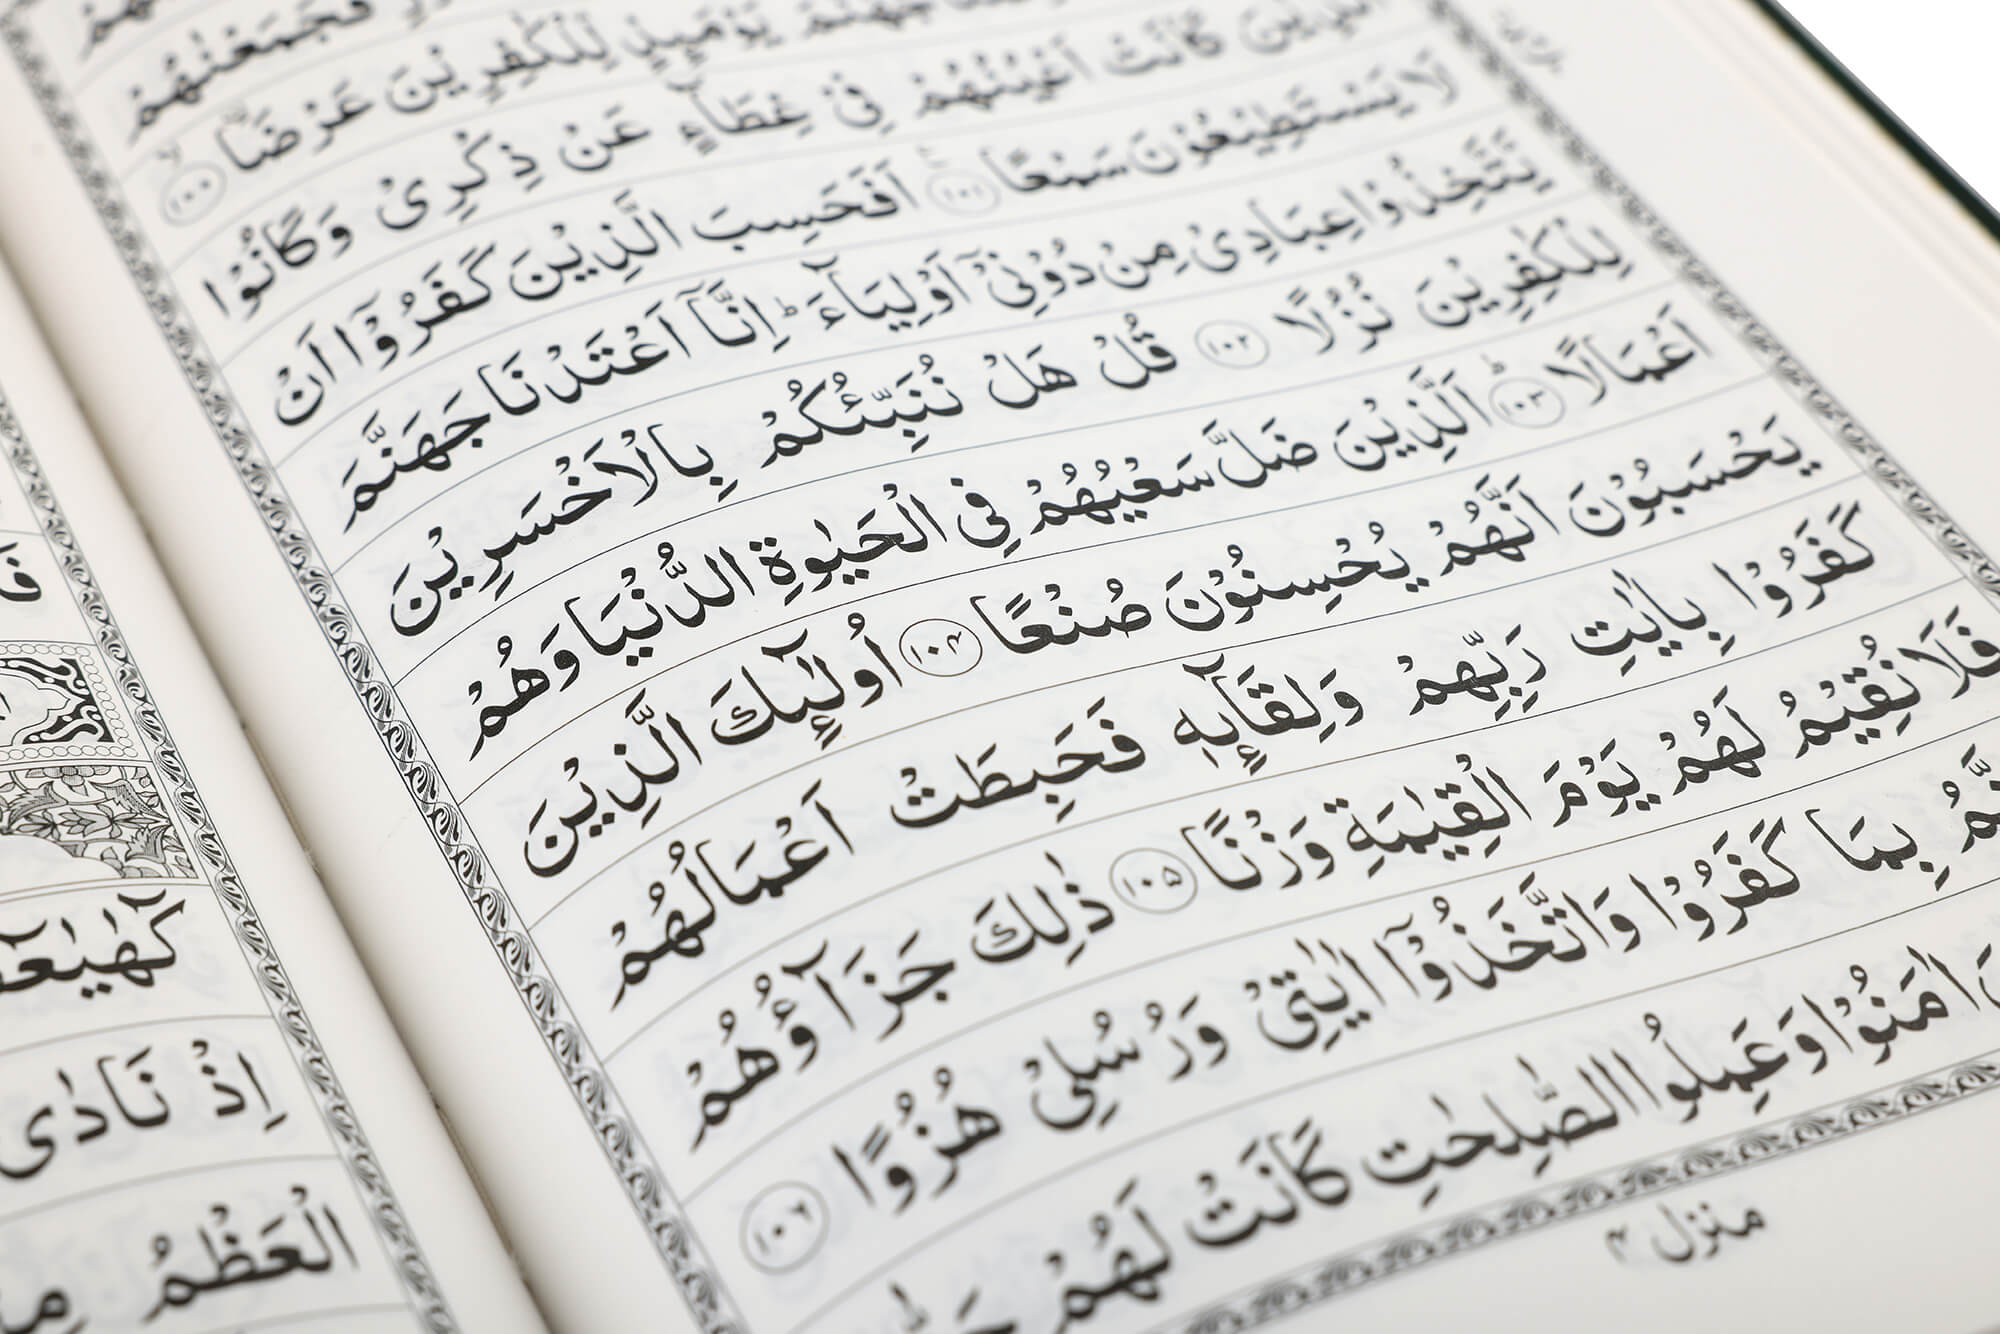 فَجَمَعْنٰهُمْ
جَهَنَّمَ يَوْمَىِٕذٍ لِّلْكٰفِرِيْنَ عَرْضَاۙ ۱۰۰
الَّذِيْنَ كَانَتْ اَعْيُنُهُمْ فِيْ غِطَآءٍ عَنْ ذِكْرِيْ وَكَانُوْا
لَا يَسْتَطِيْعُوْنَ سَمْعًا ۱۰۱ اَفَحَسِبَ الَّذِيْنَ كَفَرُوْٓا اَنْ
يَّتَّخِذُوْا عِبَادِيْ مِنْ دُوْنِيْٓ اَوْلِيَآءَؕ اِنَّآ اَعْتَدْنَا جَهَنَّمَ
لِلْكٰفِرِيْنَ نُزُلًا ۱۰۲ قُلْ هَلْ نُنَبِّئُكُمْ بِالْاَخْسَرِيْنَ
اَعْمَالًاؕ ۱۰۳ اَلَّذِيْنَ ضَلَّ سَعْيُهُمْ فِي الْحَيٰوةِ الدُّنْيَا وَهُمْ
يَحْسَبُوْنَ اَنَّهُمْ يُحْسِنُوْنَ صُنْعًا ۱۰۴ اُولٰٓىِٕكَ الَّذِيْنَ
كَفَرُوْا بِاٰيٰتِ رَبِّهِمْ وَلِقَآىِٕهٖ فَحَبِطَتْ اَعْمَالُهُمْ
فَلَا نُقِيْمُ لَهُمْ يَوْمَ الْقِيٰمَةِ وَزْنًا ۱۰۵ ذٰلِكَ جَزَآؤُهُمْ
بِمَا كَفَرُوْا وَاتَّخَذُوْٓا اٰيٰتِيْ وَرُسُلِيْ هُزُوًا ۱۰۶
اٰمَنُوْا وَعَمِلُوا الصّٰلِحٰتِ كَانَتْ لَهُمْ
منزل ۴
اِذْ نَادٰى
الْعَظْمُ